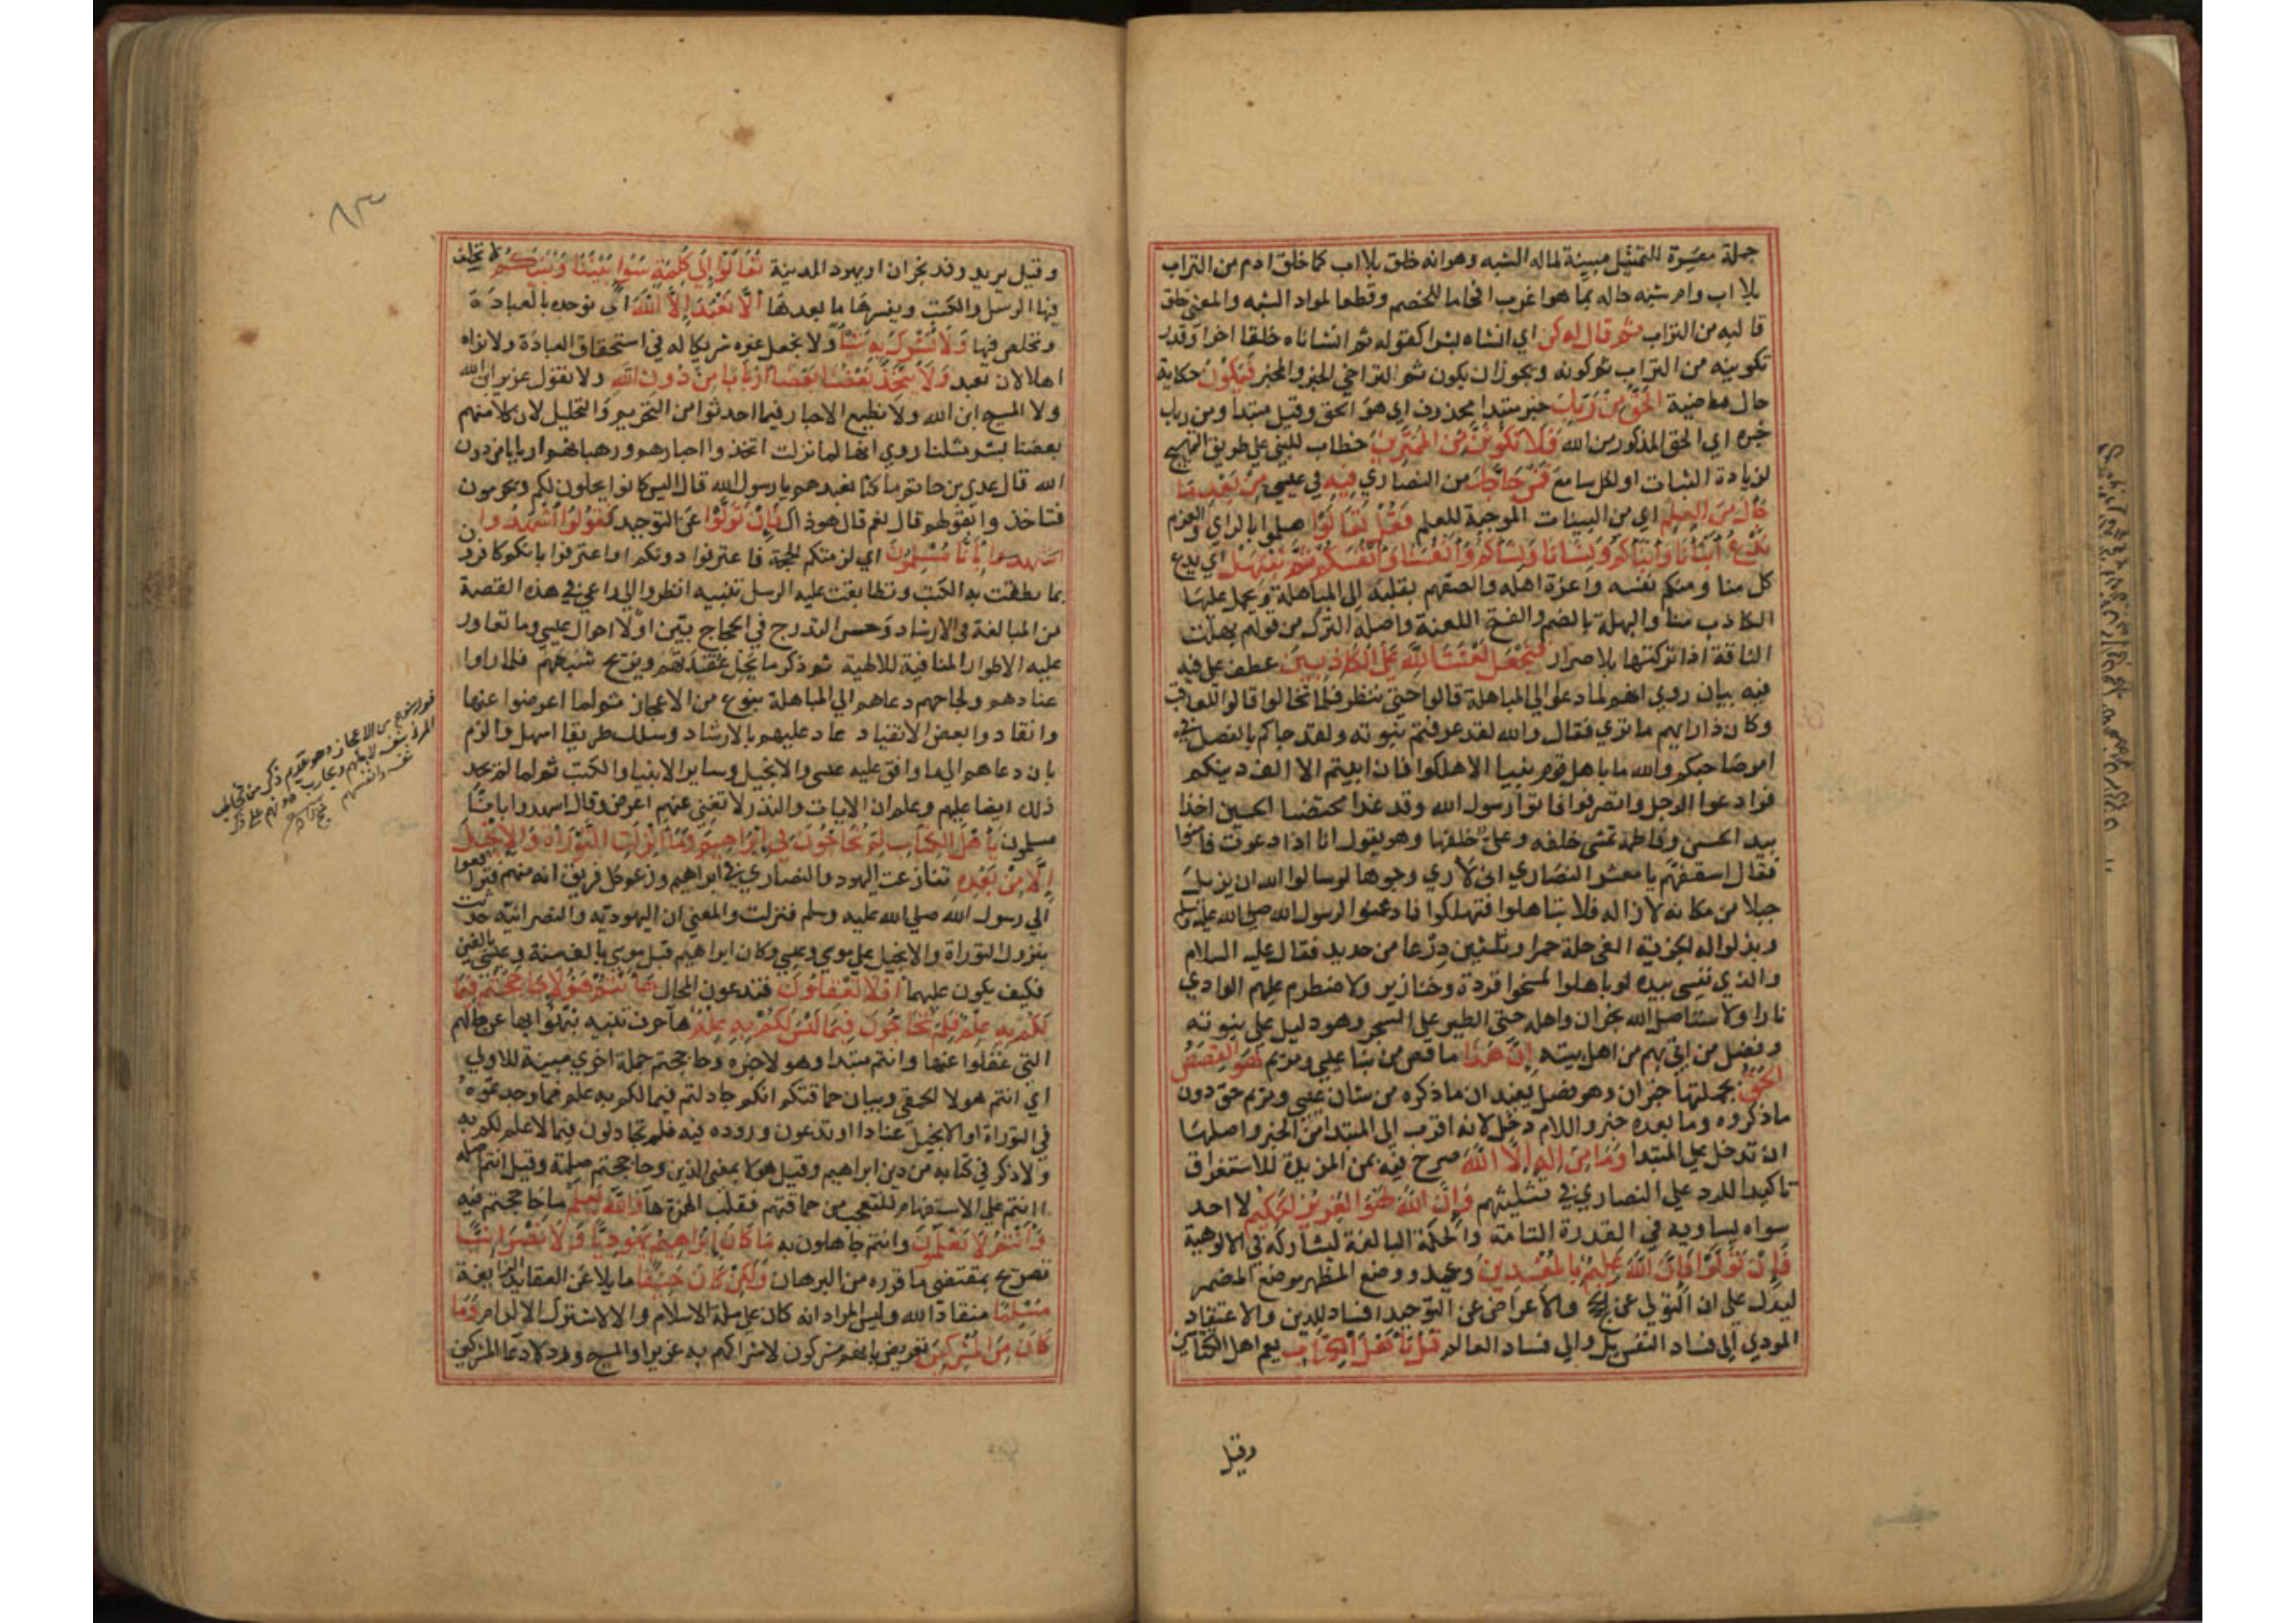 جملة مفسرة للتمثيل مبينة لماله الشبه وهوانه خلق بلا اب كما خلق ادم من التراب
بلا اب وام شبه حاله بما هو اغرب افحاما للخصم وقطعا لمواد الشبه والمعنى خلق
قالبه من التراب ثم قال له كن اي انشاه بشرا كقوله ثم انشاناه خلقا اخر او قدر
تكوينه من التراب ثم كونه ويجوز ان يكون ثم لتراخي الخبر والمخبر فيكون حكاية
حال ماضية الحق من ربك خبر مبتدا محذوف اي هو الحق وقيل مبتدا ومن ربك
خبره اي الحق المذكور من الله فلا تكونن من الممترين خطاب للنبي على طريق التهييج
لزيادة الثبات او لكل سامع فمن حاجك من النصاري فيه في عيسى من بعد ما
جاك من العلم اي من البينات الموجبة للعلم فقل تعالوا هلموا بالراي والعزم
ندع ابنانا وابناكم ونسانا ونساكم وانفسنا وانفسكم ثم نبتهل اي يدع
كل منا ومنكم نفسه واعزة اهله والصقهم بقلبه الى المباهلة ويحمل عليها
الكاذب منا والبهلة بالضم والفتح اللعنة واصله الترك من قولهم بهلت
الناقة اذا تركتها بلا صرار فنجعل لعنت الله على الكاذبين عطف على فيه
فيه بيان روي انهم لما دعوا الى المباهلة قالوا حتى ننظر فلما تخالوا قالوا للعاقب
وكان ذا رايهم ما تري فقال والله لقد عرفتم نبوته ولقد جاكم بالفصل في
امر صاحبكم والله ما باهل قوم نبيا الا هلكوا فان ابيتم الا الف دينكم
فوادعوا الرجل وانصرفوا فاتوا رسول الله وقد غدا محتضنا الحسين اخذا
بيد الحسن وفاطمة تمشي خلفه وعلى خلفها وهو يقول انا اذا دعوت فامنوا
فقال اسقفهم يا معشر النصاري اني لاري وجوها لو سالوا الله ان يزيل
جبلا من مكانه لازاله فلا تباهلوا فتهلكوا فاذعنوا لرسول الله صلى الله عليه وسلم
وبذلوا له الجزية الفي حلة حمرا وثلثين درعا من حديد فقال عليه السلام
والذي نفسي بيده لو باهلوا لمسخوا قردة وخنازير ولاضطرم عليهم الوادي
نارا ولاستاصل الله نجران واهله حتى الطير على الشجر وهو دليل على نبوته
وفضل من اتي بهم من اهل بيته ان هذا ما قص من نبا عيسى ومريم لهو القصص
الحق بجملتها خبر ان وهو فصل يفيد ان ما ذكره من شان عيسى ومريم حق دون
ما ذكروه وما بعده خبر واللام دخل لانه اقرب الى المبتدا من الخبر واصلها
ان تدخل على المبتدا وما من اله الا الله صرح فيه بمن المزيدة للاستغراق
تاكيدا للرد على النصاري في تثليثهم وان الله لهو العزيز الحكيم لا احد
سواه يساويه في القدرة التامة والحكمة البالغة ليشاركه في الالوهية
فان تولوا فان الله عليم بالمفسدين وعيد ووضع المظهر موضع المضمر
ليدل على ان التولي عن الحج والاعراض عن التوحيد افساد للدين والاعتقاد
المودي الى فساد النفس بل والى فساد العالم قل يا اهل الكتاب يعم اهل الكتابين
وقيل
٨٣
وقيل يريد وفد نجران او يهود المدينة تعالوا الى كلمة سوا بيننا وبينكم لا تختلف
فيها الرسل والكتب ويفسرها ما بعدها الا نعبد الا الله اي نوحده بالعبادة
ونخلص فيها ولا نشرك به شيا ولا نجعل غيره شريكا له في استحقاق العبادة ولا نراه
اهلا لان يعبد ولا يتخذ بعضنا بعضا اربابا من دون الله ولا نقول عزير ابن الله
ولا المسيح ابن الله ولا نطيع الاحبار فيما احدثوا من التحريم والتحليل لان كلا منهم
بعضنا بشر مثلنا روي انها لما نزلت اتخذوا احبارهم ورهبانهم اربابا من دون
الله قال عدي بن حاتم ما كنا نعبدهم يا رسول الله قال اليس كانوا يحلون لكم ويحرمون
فتاخذوا بقولهم قال نعم قال هو ذاك فان تولوا عن التوحيد فقولوا اشهدوا
اشهدوا بانا مسلمون اي لزمتكم الحجة فاعترفوا دونكم او اعترفوا بانكم كافرون
بما نطقت به الكتب وتطابقت عليه الرسل تنبيه انظر الى ما راعي في هذه القصة
من المبالغة في الارشاد وحسن التدرج في الحجاج بين اولا احوال عيسى وما تعاور
عليه الاطوار المنافية للالهية ثم ذكر ما يحل عقدتهم ويزيح شبهتهم فلما راوا
عنادهم ولجاجهم دعاهم الى المباهلة بنوع من الاعجاز ثم لما اعرضوا عنها
وانقادوا بعض الانقياد عاد عليهم بالارشاد وسلك طريقا اسهل والزم
بان دعاهم الى ما وافق عليه عيسى والانجيل وساير الانبيا والكتب ثم لما لم يجد
ذلك ايضا عليهم وعلم ان الايات والنذر لا تغني عنهم اعرض وقال اشهدوا بانا
مسلمون يا اهل الكتاب لم تحاجون في ابراهيم وما انزلت التوراة والانجيل
الا من بعده تنازعت اليهود والنصاري في ابراهيم وزعم كل فريق انه منهم فترافعوا
الي رسول الله صلى الله عليه وسلم فنزلت والمعني ان اليهودية والنصرانية حدثت
بنزول التوراة والانجيل على موسى وعيسى وكان ابراهيم قبل موسى بالف سنة وعيسى بالفين
فكيف يكون عليهما افلا تعقلون فتدعون المحال ها انتم هؤلا حاججتم فيما
لكم به علم فلم تحاجون فيما ليس لكم به علم ها حرف تنبيه نبهوا بها عن حالهم
التي غفلوا عنها وانتم مبتدا وهولا خبره وحاججتم جملة اخري مبينة للاولي
اي انتم هولا الحمقى وبيان حماقتكم انكم جادلتم فيما لكم به علم مما وجدتموه
في التوراة والانجيل عنادا او تدعون وروده فيه فلم تجادلون فيما لا علم لكم به
ولا ذكر في كتابه من دين ابراهيم وقيل هولا بمعنى الذين وحاججتم صلته وقيل انتم اصله
اانتم على الاستفهام للتعجب من حماقتهم فقلبت الهمزة ها والله يعلم ما حاججتم فيه
وانتم لا تعلمون وانتم جاهلون به ما كان ابراهيم يهوديا ولا نصرانيا
تصريح بمقتضى ما قرره من البرهان ولكن كان حنيفا مايلا عن العقايد الزايغة
مسلما منقادا لله وليس المراد انه كان على ملة الاسلام والا لاشترك الالزام وما
كان من المشركين تعريض بانهم مشركون لاشراكهم به عزيرا والمسيح ورد لادعا المشركين